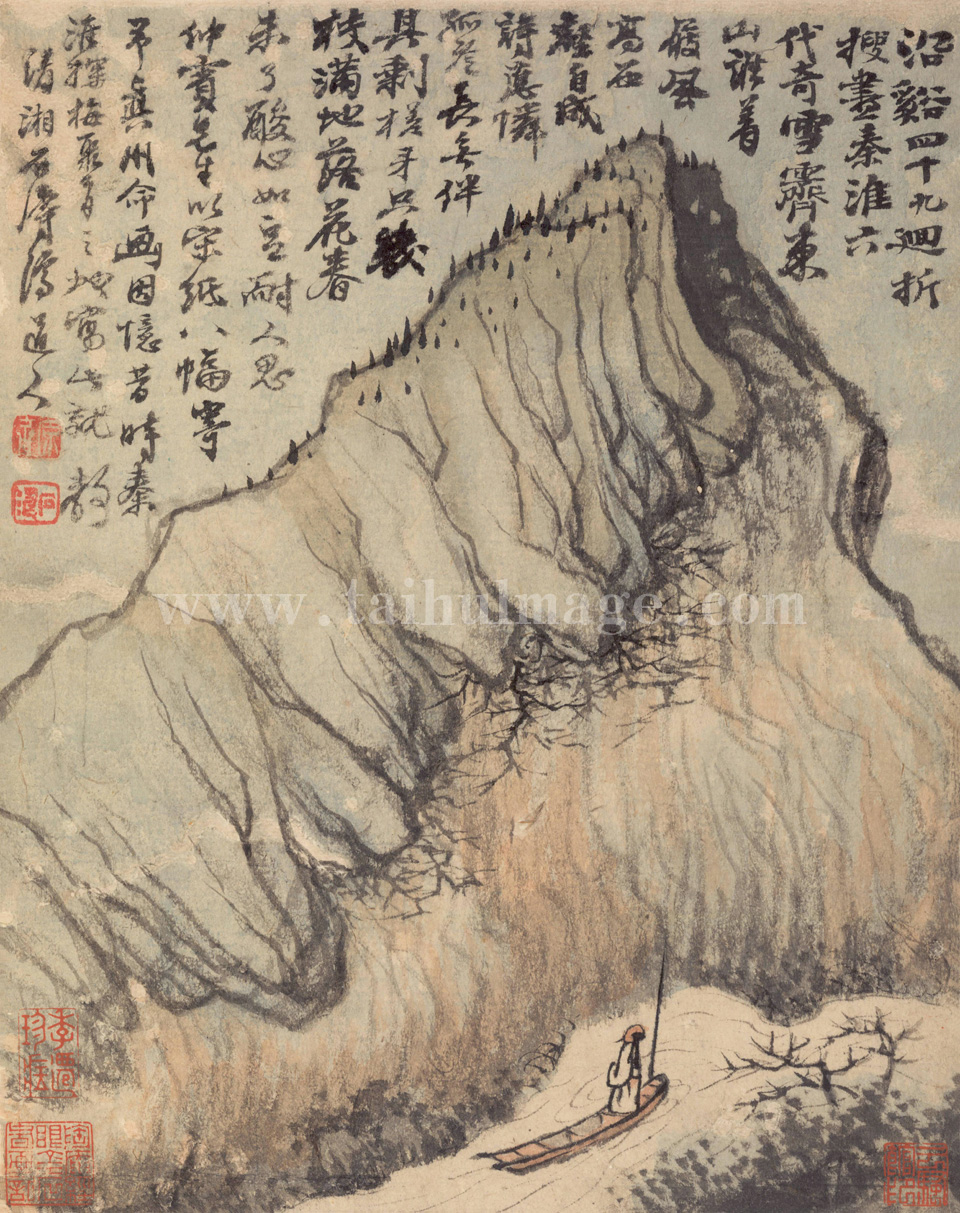 沿谿四十九迴折
搜盡秦淮六
代奇雪霽東
山誰著
屐風
高石
壑自成
詩應憐
孤老長無伴
具剩槎牙只幾
枝滿地落花春
未了酸心如豆耐人思
仲賓先生以宋紙八幅寄
弟真州命画因憶昔時秦
淮探梅最有之地寫此就
清湘石濤濟道人
www.taihuImage.com